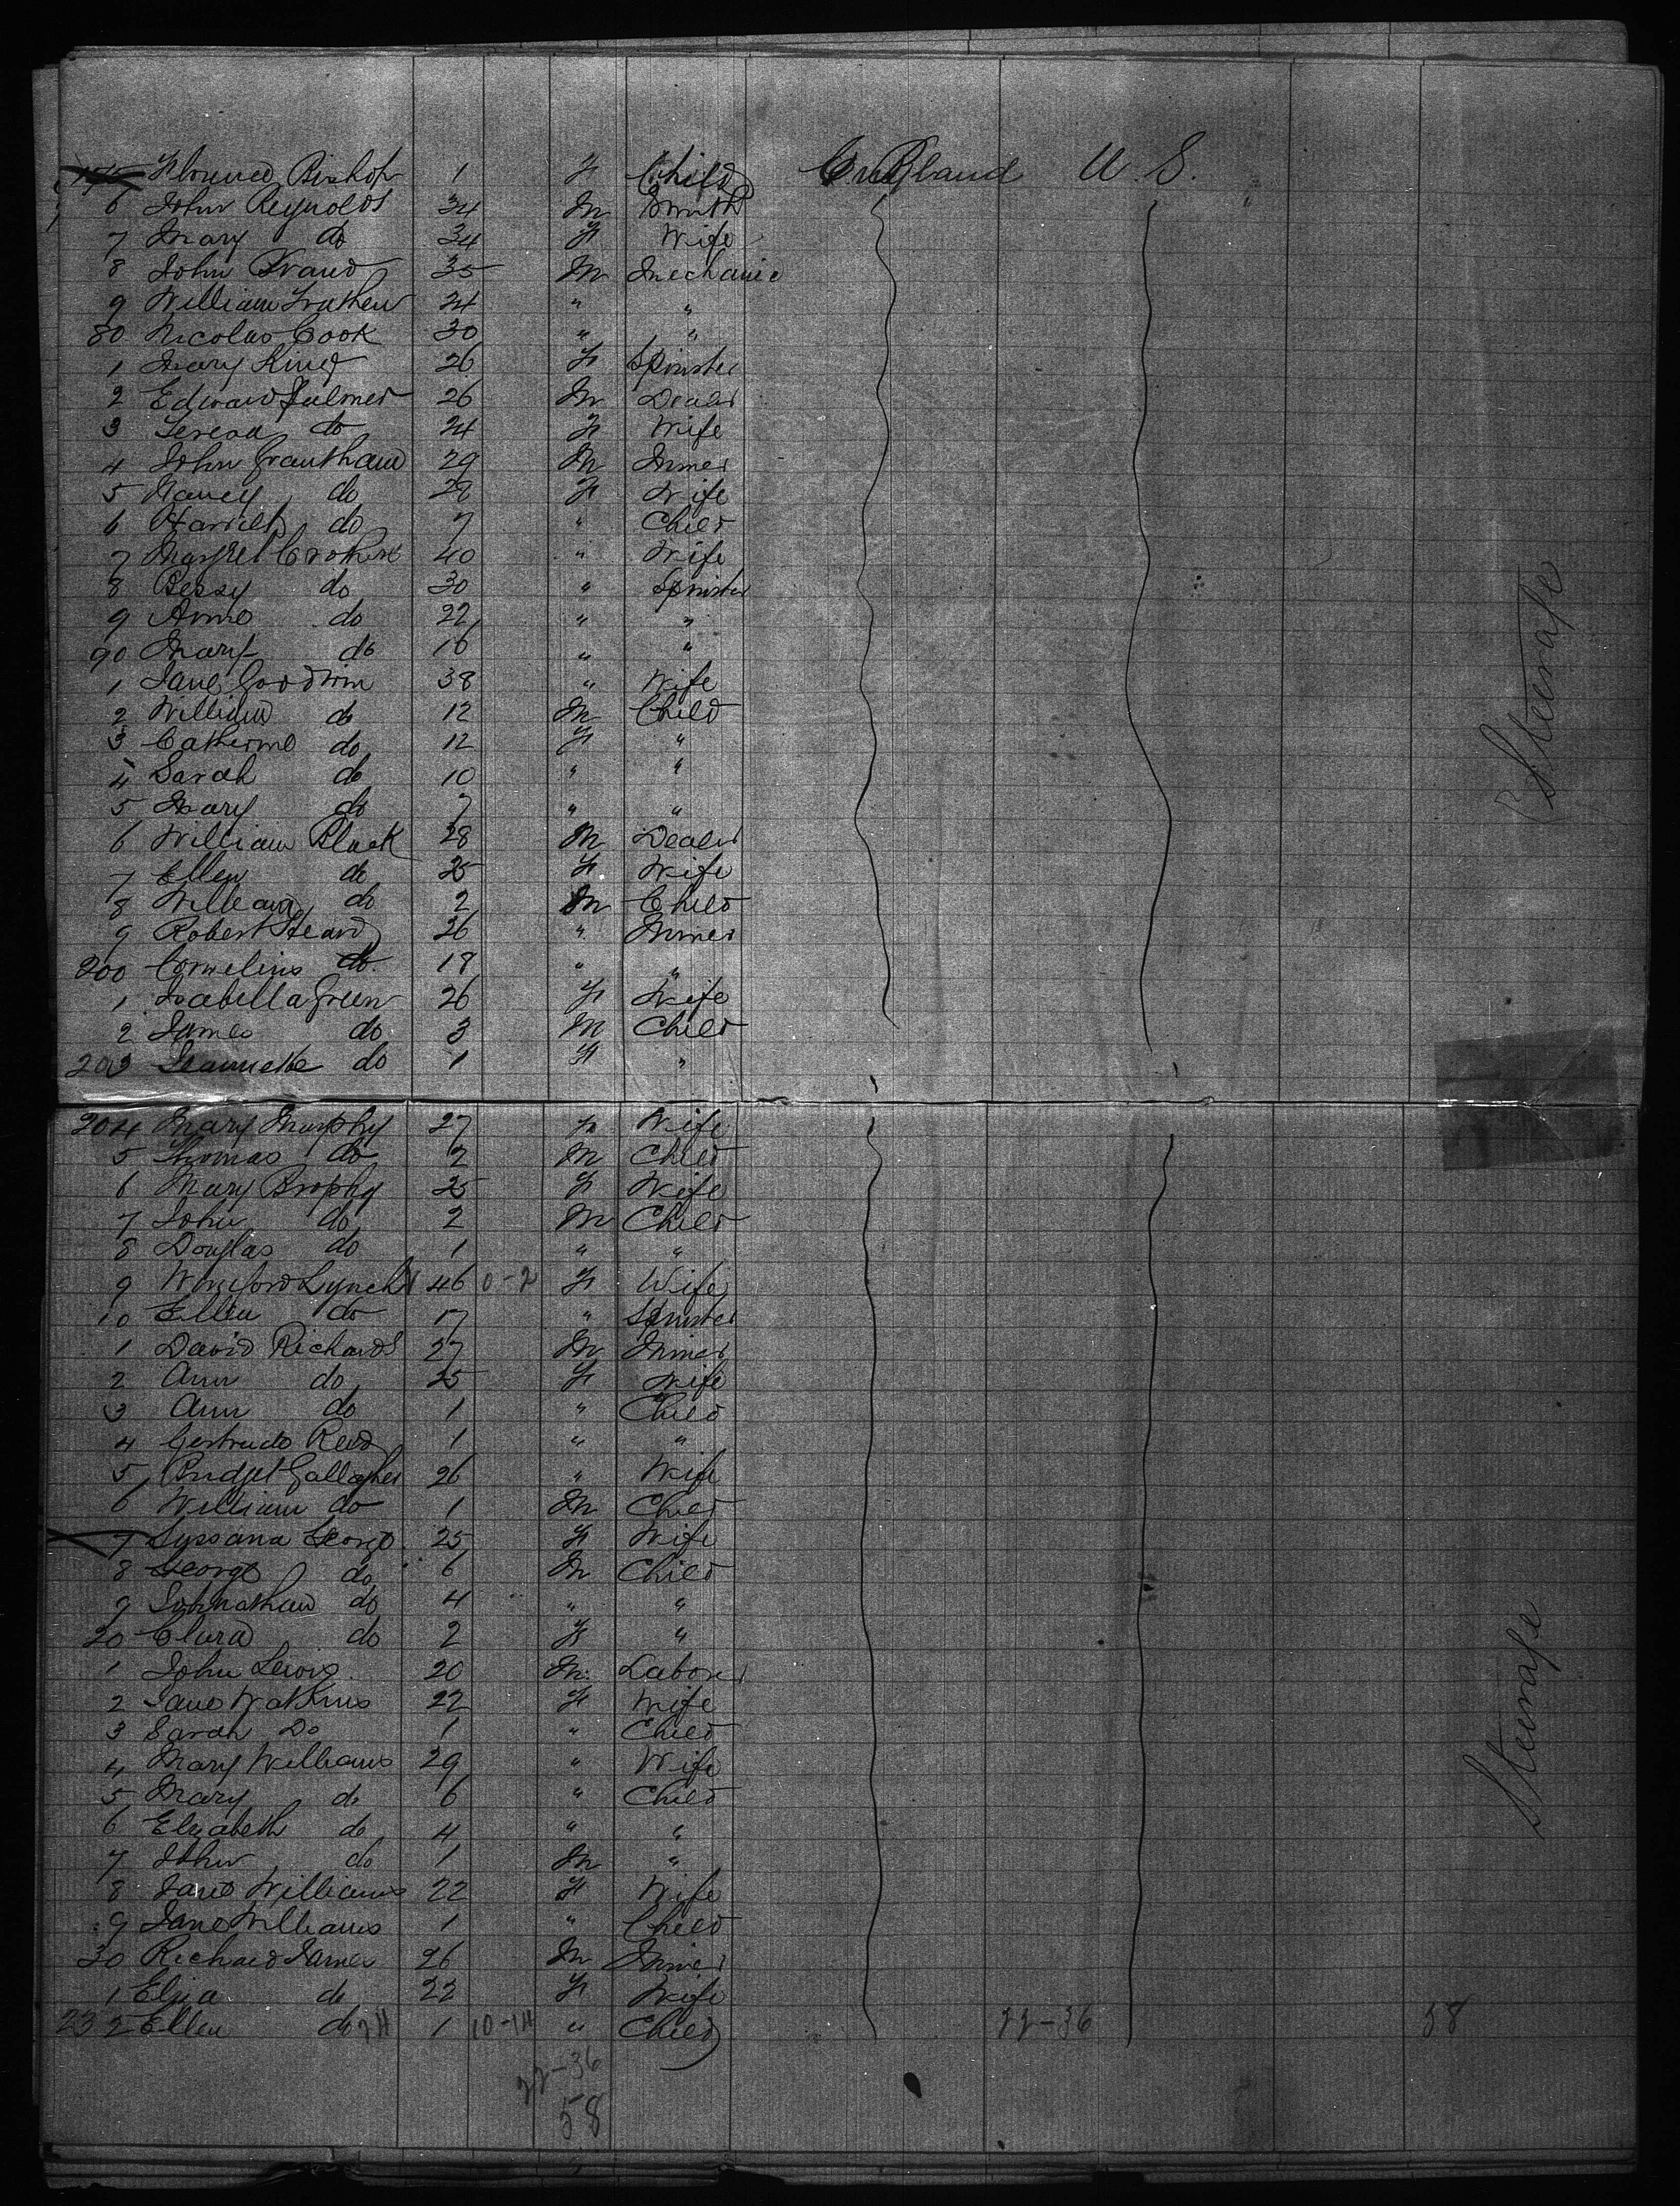 175 Florence Bishop 1 F Child England U.S.
6 John Reynolds 34 M Smith
7 Mary do 34 F Wife
8 John Brand 35 M Mechanic
9 William 24 " "
80 Nicolas Cook 30 " "
1 Mary King 26 F Spinster
2 Edward Palmer 26 M Dealer
3 Teresa do 24 F Wife
4 John Grantham 29 M Miner
5 Nancy do 28 F Wife
6 Harriet do 7 " Child
7 Margret 40 " Wife
8 Bessy do 30 " Spinster
9 Anne do 22 " "
90 Mary do 16 " "
1 Jane Goodwin 38 " Wife
2 William do 12 M Child
3 Catherine do 12 F "
4 Sarah do 10 " "
5 Mary do 7 " "
6 William Black 28 M Dealer
7 Ellen do 25 F Wife
8 William do 2 M Child
9 Robert Heard 26 " Miner
200 Cornelius do 18 " "
1 Isabella Green 26 F Wife
2 James do 3 M Child
203 Jeannette do 1 F "
Steerage
204 Mary Murphy 27 F Wife
5 Thomas do 2 M Child
6 Mary Brophy 25 F Wife
7 John do 2 M Child
8 Douglas do 1 " "
9 Winiford Lynch 46 0-2 F Wife
10 Ellen do 17 " Spinster
1 David Richards 27 M Miner
2 Ann do 25 F Wife
3 Ann do 1 " Child
4 Gertrude Reid 1 " "
5 Bridget Gallagher 26 " Wife
6 William do 1 M Child
7 Sussana George 25 F Wife
8 George do 6 M Child
9 Johnathan do 4 " "
20 Clara do 2 F "
1 John Lewis 20 M Laborer
2 Jane Watkins 22 F Wife
3 Sarah Do 1 " Child
4 Mary Williams 29 " Wife
5 Mary do 6 " Child
6 Elizabeth do 4 " "
7 John do 1 M "
8 Jane Williams 22 F Wife
9 Jane Williams 1 " Child
30 Richard James 26 M Miner
1 Eliza do 22 F Wife
232 Ellen do 24 1 10-14 " Child 22-36 58
22-36
58
Steerage